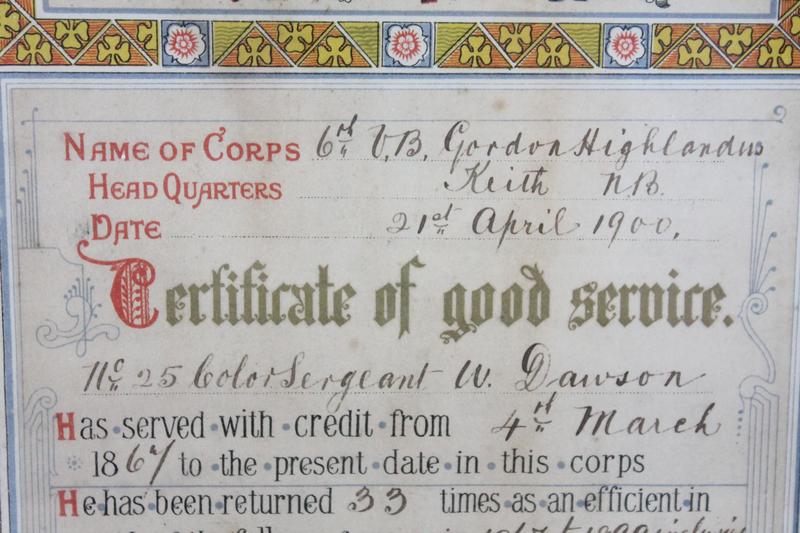 NAME OF CORPS 6rd V.B. Gordon Highlanders
HEAD QUARTERS Keith N.B.
DATE 21st April 1900.
Certificate of good service.
No 25 Color Sergeant W. Dawson
Has served with credit from 4rd March
1867 to the present date in this corps
He has been returned 33 times as an efficient in